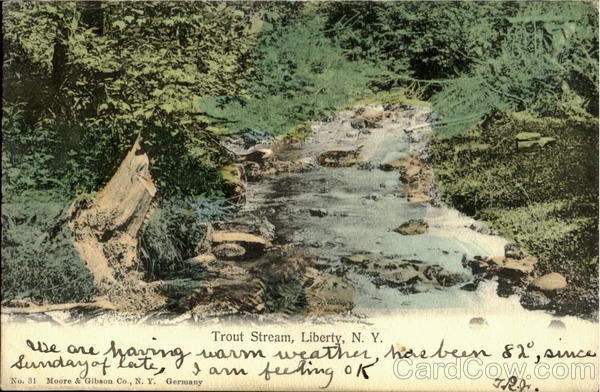 Trout Stream, Liberty, N. Y.
We are having warm weather, has been 82°, since
Sunday of late, I am feeling OK
No. 31 Moore & Gibson Co., N. Y. Germany
CardCow.com